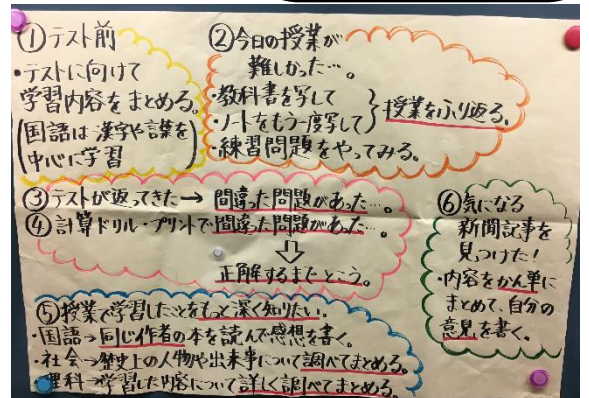 ①テスト前
・テストに向けて
学習内容をまとめる。
(国語は漢字や言葉を
中心に学習)
②今日の授業が
難しかった…。
・教科書を写して
・ノートをもう一度写して} 授業をふり返る。
・練習問題をやってみる。
③テストが返ってきた→間違った問題があった…。
④計算ドリル・プリントで間違った問題があった…。
⇩
正解するまでとこう。
⑥気になる
新聞記事を
見つけた!
・内容をかん単に
まとめて、自分の
意見を書く。
⑤授業で学習したことをもっと深く知りたい。
・国語→同じ作者の本を読んで感想を書く。
・社会→歴史上の人物や出来事について調べてまとめる。
・理科→学習した内容について詳しく調べてまとめる。